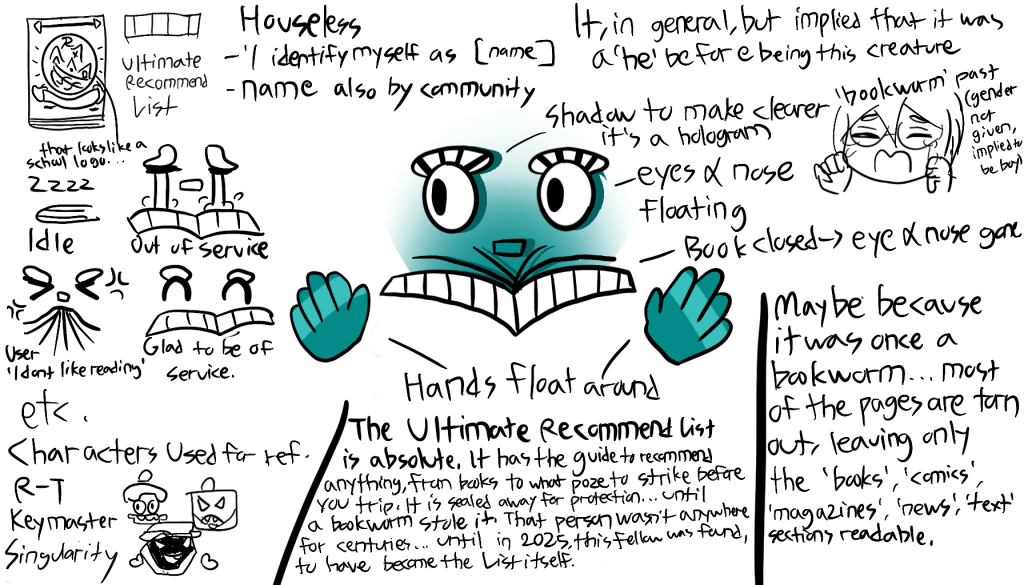 Houseless
- 'I identify myself as [name]
- name also by community
It, in general, but implied that it was
a 'he' before being this creature
Ultimate
Recommend
List
that looks like a
school logo...
zzzz
Idle
Out of Service
User
'I dont like reading'
Glad to be of
service.
etc.
Characters Used for ref.
R-T
Keymaster
Singularity
shadow to make clearer
it's a hologram
eyes & nose
floating
Book closed → eye & nose gone
'bookworm' past
(gender
not
given,
implied to
be boy)
Hands float around
The Ultimate Recommend List
is absolute. It has the guide to recommend
anything, from books to what poze to strike before
you trip. It is sealed away for protection... until
a bookworm stole it. That person wasn't anywhere
for centuries... until in 2025, this fellow was found,
to have become the List itself.
Maybe because
it was once a
bookworm... most
of the pages are torn
out, leaving only
the 'books', 'comics',
'magazines', 'news', 'text'
sections readable.